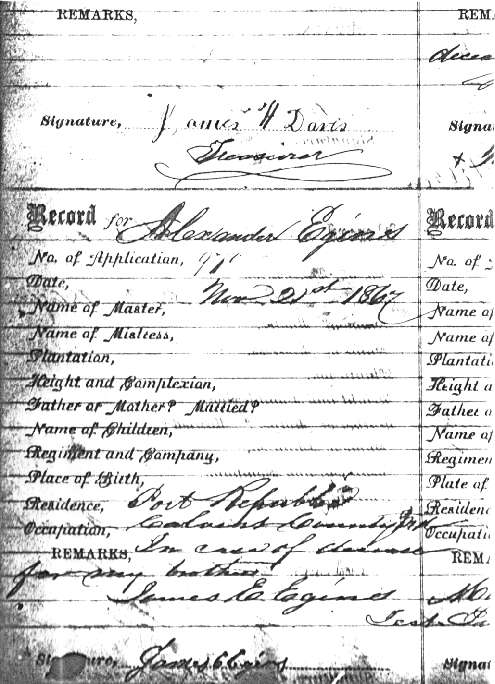 REMARKS,
Signature, James H Davis
Record for Alexander Egins
No. of Application,
Date, Nov 21st 1867
Name of Master,
Name of Mistress,
Plantation,
Height and Complexian,
Father or Mother? Married?
Name of Children,
Regiment and Company,
Place of Birth,
Residence, Port Republic
Occupation, Calvins County Md
REMARKS, In case of
for my brother
James C Egins
Signature, James C Egins
REM
Signat
Record
No. of
Date,
Name of
Name of
Plantati
Height a
Father o
Name of
Regimen
Plate of
Residenc
Occupati
REMA
Signat